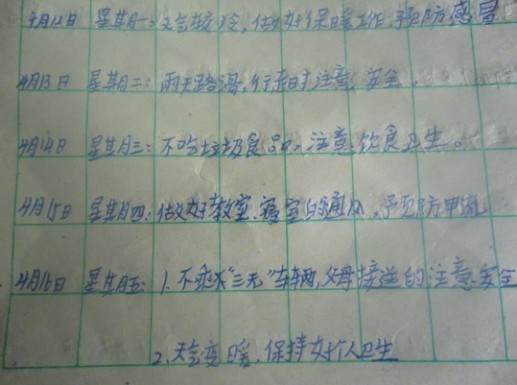 4月12日 星期一:天气较冷,做好保暖工作,预防感冒
4月13日 星期二:雨天路滑,行走时注意安全。
4月14日 星期三:不吃垃圾食品,注意饮食卫生。
4月15日 星期四:做好教室、寝室的通风,预防甲流
4月16日 星期五:1.不乘坐“三无”车辆,父母接送的注意安全
2.天气变暖,保持好个人卫生